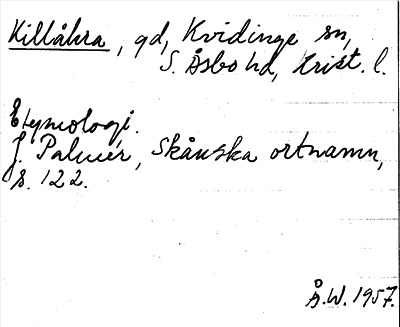 Killåkra, gd, Kvidinge sn,
S. Åsbo hd, Krist. l.
Etymologi.
J. Palmér, Skånska ortnamn,
s. 122.
Å.W. 1957.